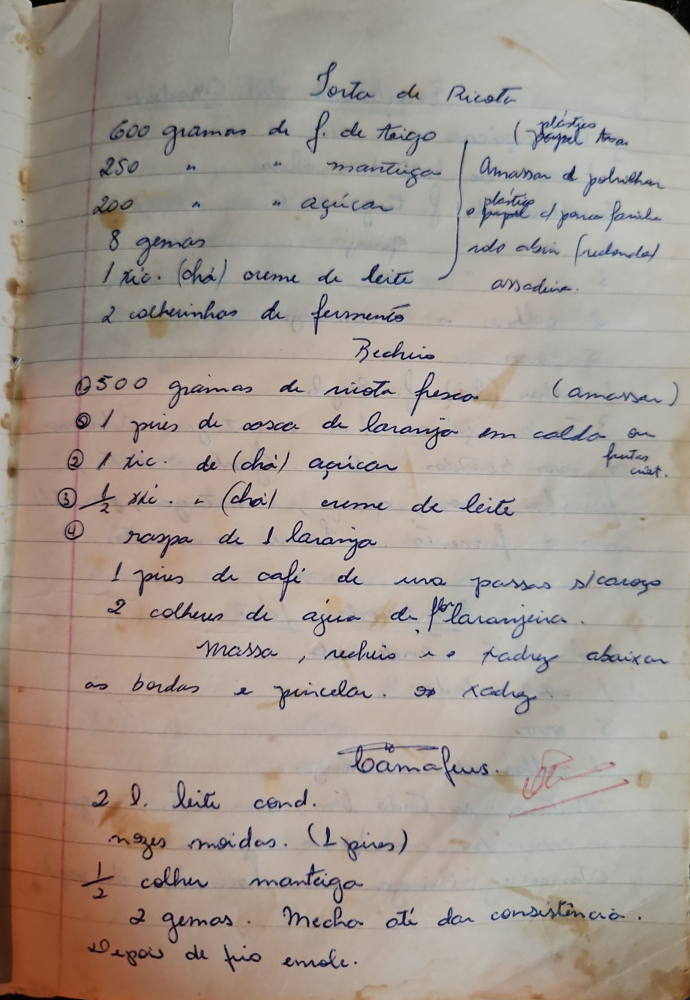 Torta de Ricota
600 gramas de f. de trigo
250 " " manteiga
200 " " açúcar
8 gemas
1 xic. (chá) creme de leite
2 colherinhas de fermento
( plástico
papel
Amassar d polvilhar
plástico
o papel c/ pouca farinha
abrir (redonda)
assadeira.
Recheio
① 500 gramas de ricota fresca (amassar)
⑤ 1 pires de casca de laranja em calda ou
frutas crist.
② 1 xic. de (chá) açúcar
③ 1/2 xic. " (chá) creme de leite
④ raspa de 1 laranja
1 pires de café de uva passas s/caroço
2 colheres de água de flor laranjeira.
Massa, recheio e o xadrez abaixar
as bordas e pincelar. xadrez.
Camafeus.
2 l. leite cond.
nozes moidas. (1 pires)
1/2 colher manteiga
2 gemas. Mecha até dar consistência.
Depois de frio enrole.